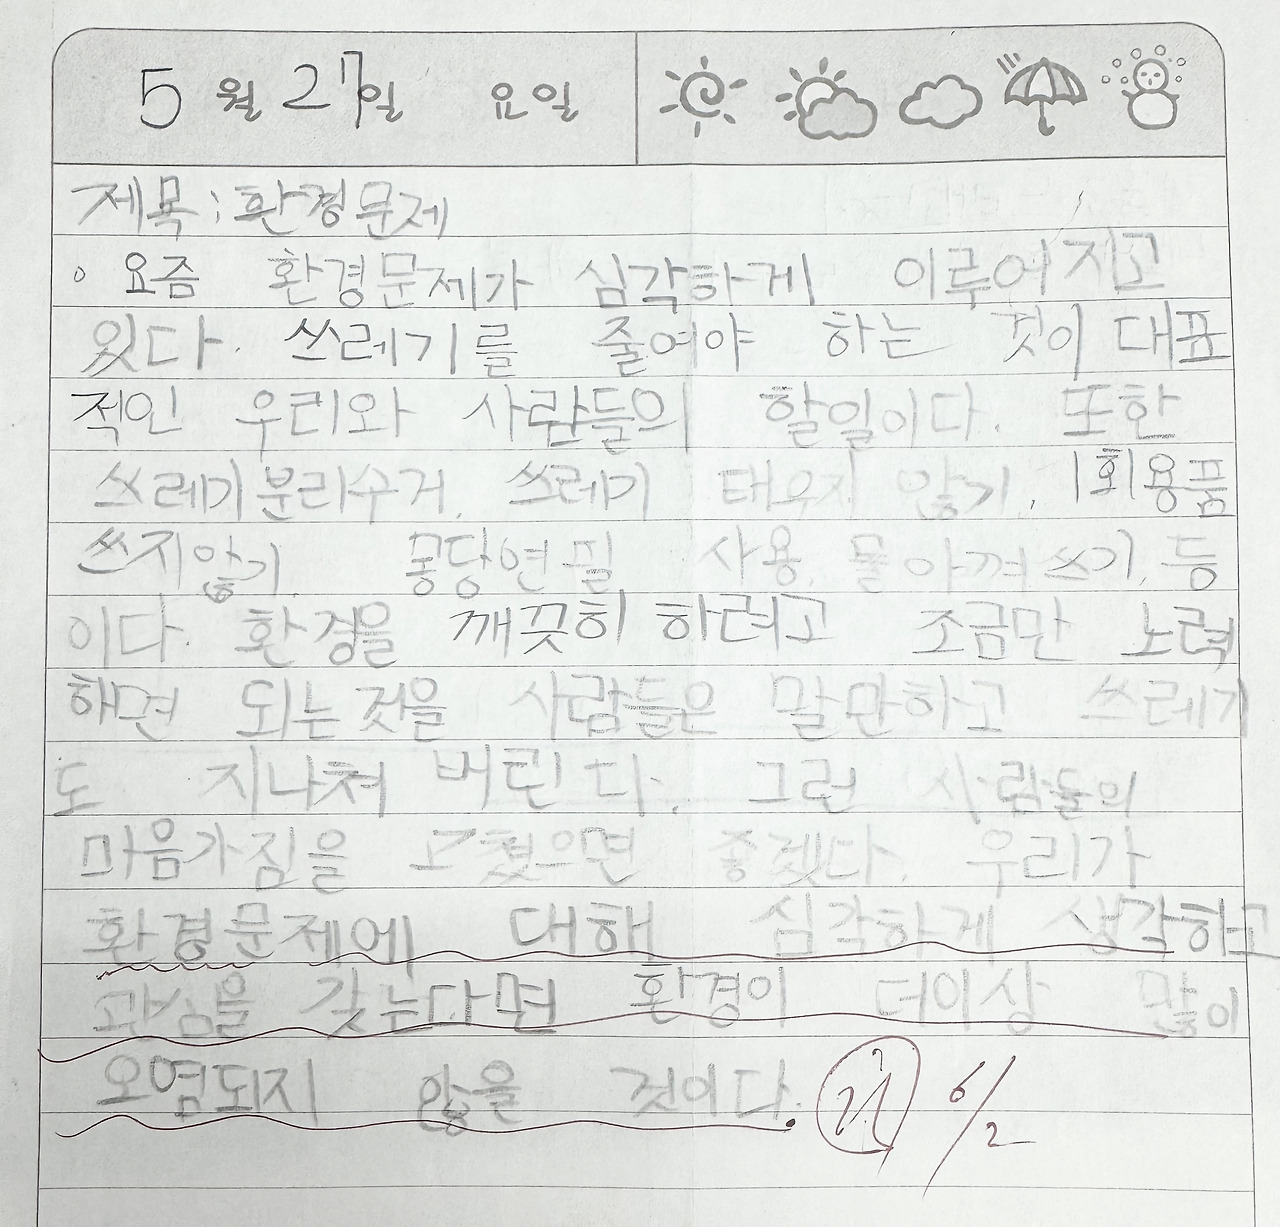 5월 27일 요일
제목:환경문제
요즘 환경문제가 심각하게 이루어지고
있다. 쓰레기를 줄여야 하는 것이 대표
적인 우리와 사람들의 할일이다. 또한
쓰레기분리수거, 쓰레기 태우지 않기, 1회용품
쓰지않기, 몽당연필 사용, 물 아껴쓰기, 등
이다. 환경을 깨끗히 하려고 조금만 노력
하면 되는것을 사람들은 말만하고 쓰레기
도 지나쳐 버린다. 그런 사람들의
마음가짐을 고쳤으면 좋겠다. 우리가
환경문제에 대해 심각하게 생각하고
관심을 갖는다면 환경이 더이상 많이
오염되지 않을 것이다.
6/2